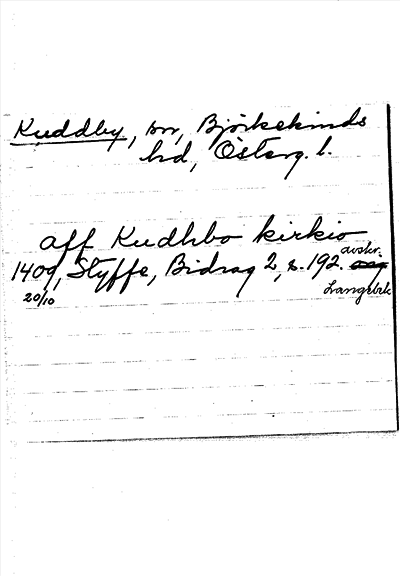 Kuddby, sn, Björkekinds
hd, Österg. l.
aff Kudhbo kirkio
avskr.
1409, Styffe, Bidrag 2, s. 192.
20/10
Langebek